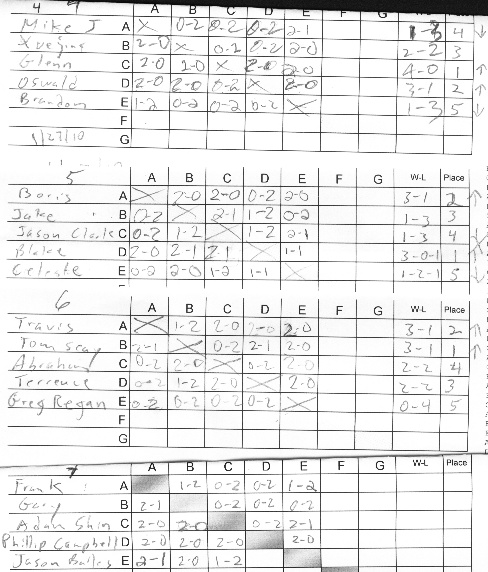 4
A B C D E F G W-L Place
Mike J A X 0-2 0-2 0-2 2-1 1-3 4 ↓
B 2-0 X 0-2 0-2 2-0 2-2 3
Glenn C 2-0 2-0 X 2-0 2-0 4-0 1 ↑
Oswald D 2-0 2-0 0-2 X 2-0 3-1 2 ↑
Brandon E 1-2 0-2 0-2 0-2 X 1-3 5 ↓
F
1/27/10 G
5
A B C D E F G W-L Place
Boris A X 2-0 2-0 0-2 2-0 3-1 2 ↑
Jake B 0-2 X 2-1 1-2 0-2 1-3 3
Jason Clark C 0-2 1-2 X 1-2 2-1 1-3 4
Blake D 2-0 2-1 2-1 1-1 3-0-1 1
Celeste E 0-2 2-0 1-2 1-1 X 1-2-1 5 ↓
6
A B C D E F G W-L Place
Travis A X 1-2 2-0 2-0 2-0 3-1 2 ↑
Tom Seay B 2-1 X 0-2 2-1 2-0 3-1 1 ↑
Abraham C 0-2 2-0 X 0-2 2-0 2-2 4
Terrence D 0-2 1-2 2-0 X 2-0 2-2 3
Greg Regan E 0-2 0-2 0-2 0-2 X 0-4 5
F
G
7
A B C D E F G W-L Place
Frank A 1-2 0-2 0-2 1-2
Gary B 2-1 0-2 0-2 0-2
Adam Shin C 2-0 2-0 0-2 2-1
Phillip Campbell D 2-0 2-0 2-0 2-0
Jason Bailey E 2-1 2-0 1-2